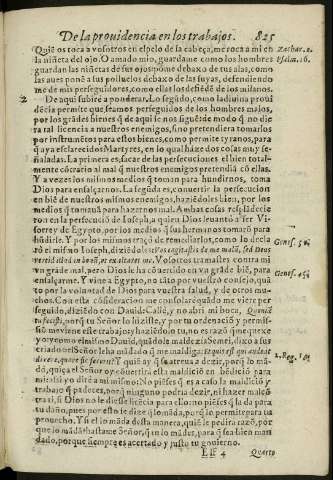 De la prouidencia en los trabajos. 825
Quiē os toca a vosotros en el pelo de la cabeça, me toca a mi en
la niñeta del ojo. O amado mio, guardame como los hombres
guardan las niñetas de sus ojos: pōme debaxo de tus alas, como
las aues ponē a sus polluelos debaxo de las suyas, defendiendo
me de mis perseguidores, como ellas los defiēdē de los milanos.
Zachar. 2.
Psalm. 16.
2 De aqui subirè a ponderar. Lo segūdo, como la diuina proui
dēcia permite que seamos perseguidos de los hombres malos,
por los grādes bienes q̄ de aqui se nos siguē: de modo q̄ no die
ra tal licencia a nuestros enemigos, sino pretendiera tomarlos
por instrumētos para estos bienes, como permite tyranos, para
q̄ aya esclarecidos Martyres, en lo qual haze dos cosas muy se-
ñaladas. La primera es, sacar de las persecuciones el bien total-
mēte cōtrario al mal q̄ nuestros enemigos pretendiā cō ellas.
Y a vezes los mismos medios q̄ toman para hundirnos, toma
Dios para ensalçarnos. La segūda es, conuertir la persecucion
en biē de nuestros mismos enemigos, haziēdoles bien, por los
medios q̄ tomauā para hazernos mal. Ambas cosas resplādecie
ron en la persecuciō de Ioseph, a quien Dios leuantò a ser Vi-
sorrey de Egypto, por los medios q̄ sus hermanos tomarō para
hūdirle. Y por los mismos traçò de remediarlos, como lo decla
rò el mismo Ioseph, diziēdoles: Vos cogitastis de me malū, sed Deus
vertit illud in bonū, vt exaltaret me. Vosotros tramastes contra mi
vn grāde mal, pero Dios le ha cōuertido en vn grāde biē, para
ensalçarme. Y vine a Egypto, no tāto por vuestro consejo, quā
to por la volūtad de Dios para vuestra salud, y de otros mu-
chos. Con esta cōsideracion me consolarè quādo me viere per
seguido, diziēdo con Dauid: Callè, y no abri mi boca, Quoniā
tu fecisti, porq̄ tu Señor lo hiziste, y por tu ordenaciō y permis-
siō me viene este trabajo; y haziēdolo tu, no es razō que me quexe
Genes. 50.
Genes. 45.
y como el mismo Dauid, quādo le maldezia Semei, dixo a sus
criados: el Señor le ha mādado q̄ me maldiga:
2. Reg. 16.
quiē ay q̄ se atreua a dezir, porq̄ lo mā-
dò, quiçà el Señor cōuertirà esta maldiciō en bēdiciō para
mi:
trabajo q̄ padeces, porq̄ ninguno podria dezir, ni hazer mal cō
tra ti, si Dios no le diesse licēcia para ello: no piēses q̄ la da para
tu daño, pues por esto se dize q̄ lo māda, porq̄ lo permite para tu
prouecho. Y si el lo māda desta manera, quiē le pedirà razō, por
que lo mādò? hasta me Señor, q̄ tu lo mādes, para q̄ sea bien man
dado, porque siempre es acertado y justo tu gouierno.
Fff 4 Quarto